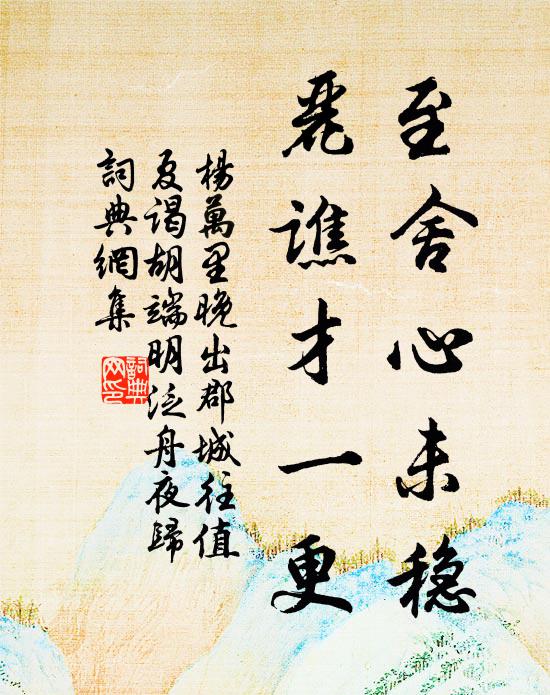 至舍心未稳
丽谯才一更
楊萬里晚出郡城往值
夏谒胡端明泛舟夜歸
詞典網集
詞典
网印